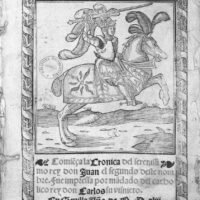 Comiẽça la Cronica del serenissi
mo rey don Juan el segundo deste nom
bre. Fue impressa por mãdado del catho
lico rey don Carlos su visnieto.
En Seuilla Año de M. D. xliij